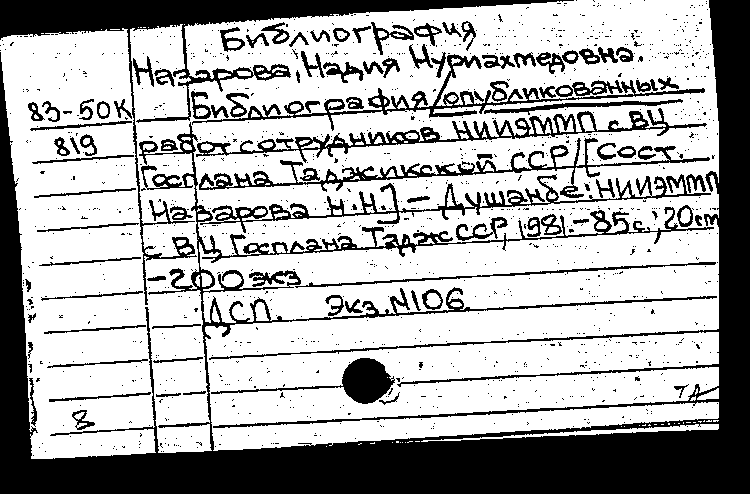 Библиография
Назарова, Надия Нуриахмедовна.
83-50К Библиография опубликованных
819 работ сотрудников НИИЭММП с ВЦ
Госплана Таджикской ССР/[Сост.
Назарова Н.Н.] – Душанбе: НИИЭММП
с ВЦ Госплана ТаджССР, 1981.-85с.; 20см
-200экз.
ДСП. Экз.N106
8
ТА